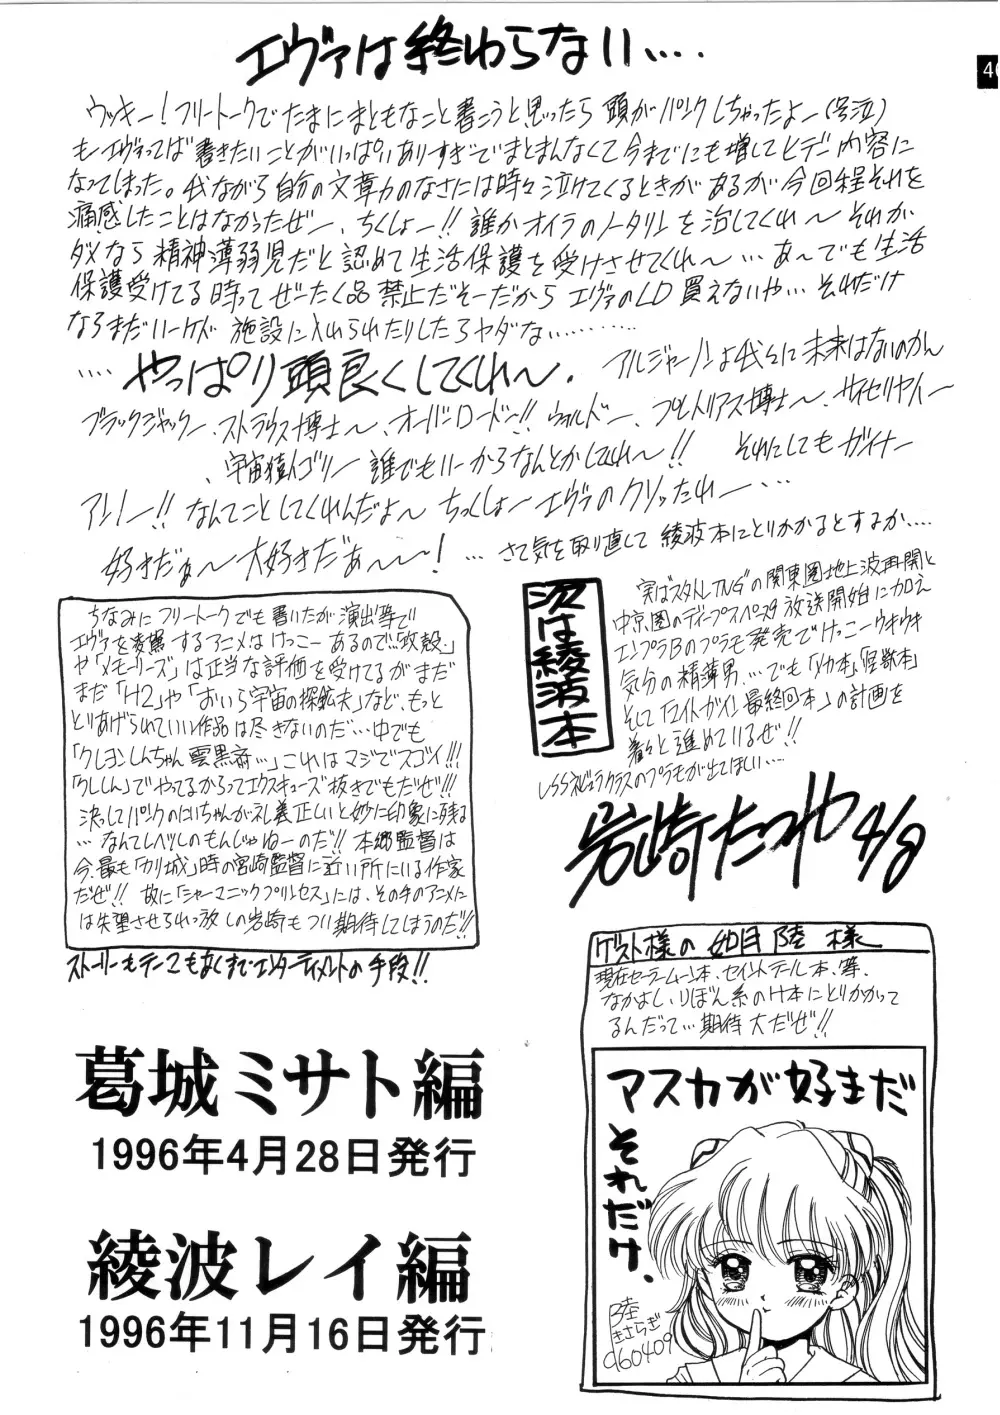 エヴァは終わらない….
40
ウッキー!フリートークでたまにまともなこと書こうと思ったら頭がパンクしちゃったよー(号泣)
もーエヴァってば書きたいことがいっぱいありすぎでまとまんなくて今までにも増してヒデー内容に
なってしまった。我ながら自分の文章力のなさには時々泣けてくるときがあるが今回程それを
痛感したことはなかったぜー、ちくしょー!!誰かオイラのノータリンを治してくれ〜それが
ダメなら精神薄弱児だと認めて生活保護を受けさせてくれ〜…あ〜でも生活
保護受けてる時ってぜーたく品禁止だそーだからエヴァのLD買えないや…それだけ
ならまだいーケド施設に入れられたりしたらヤダな………
‥‥やっぱり頭良くしてくれ〜.
アルジャーノンよ我々に未来はないのかん
ブラックジャックー、ストラウス博士〜、オーバーロードー!!ウォルドー、プトレリアス博士〜、サイセリヤイー
、宇宙猿人ゴリー誰でもいーからなんとかしてくれ〜!! それにしてもガイナー
アンノー!!なんてことしてくれんだよ〜ちっくしょーエヴァのクソッたれー…
好きだぁ〜大好きだぁ〜〜!…さて気を取り直して綾波本にとりかかるとするか‥‥
ちなみにフリートークでも書いたが演出等で
エヴァを凌駕するアニメはけっこーあるので…「攻殻」
や「メモリーズ」は正当な評価を受けてるがまだ
まだ「H2」や「おいら宇宙の探鉱夫」など、もっと
とりあげられていい作品は尽きないのだ…中でも
「クレヨンしんちゃん雲黒斎…」これはマジでスゴイ!!!
「クレしん」でやってるからってエクスキューズ抜きでもだぜ!!!
決してパンクのにいちゃんが礼義正しいと妙に印象に残る
…なんてレベルのもんじゃねーのだ!!本郷監督は
今、最も「カリ城」時の宮崎監督に近い所にいる作家
だぜ!!故に「シャーマニックプリンセス」には、その手のアニメに
は失望させられっ放しの岩崎もつい期待してしまうのだ!!
ストーリーもテーマもなくまでエンターティメントの手段!!
次は綾波本
実はスタトレTNGの関東圏地上波再開と
中京圏のディープスペース9放送開始に加え
エンプラBのプラモ発売でけっこーウキウキ
気分の精薄男…でも「メカ本」「怪獣本」
そして「マイトガイン最終回本」の計画を
着々と進めているぜ!!
USSネビュラクラスのプラモが出てほしい…
岩崎たつや 4/8
ゲスト様の 如月 陸 様
現在セーラームーン本、セイントテール本、等、
なかよし、りぼん系のH本にとりかかって
るんだって…期待大だぜ!!
マスカが好きだ
それだけ.
陸
きさらぎ
960409
葛城ミサト編
1996年4月28日発行
綾波レイ編
1996年11月16日発行